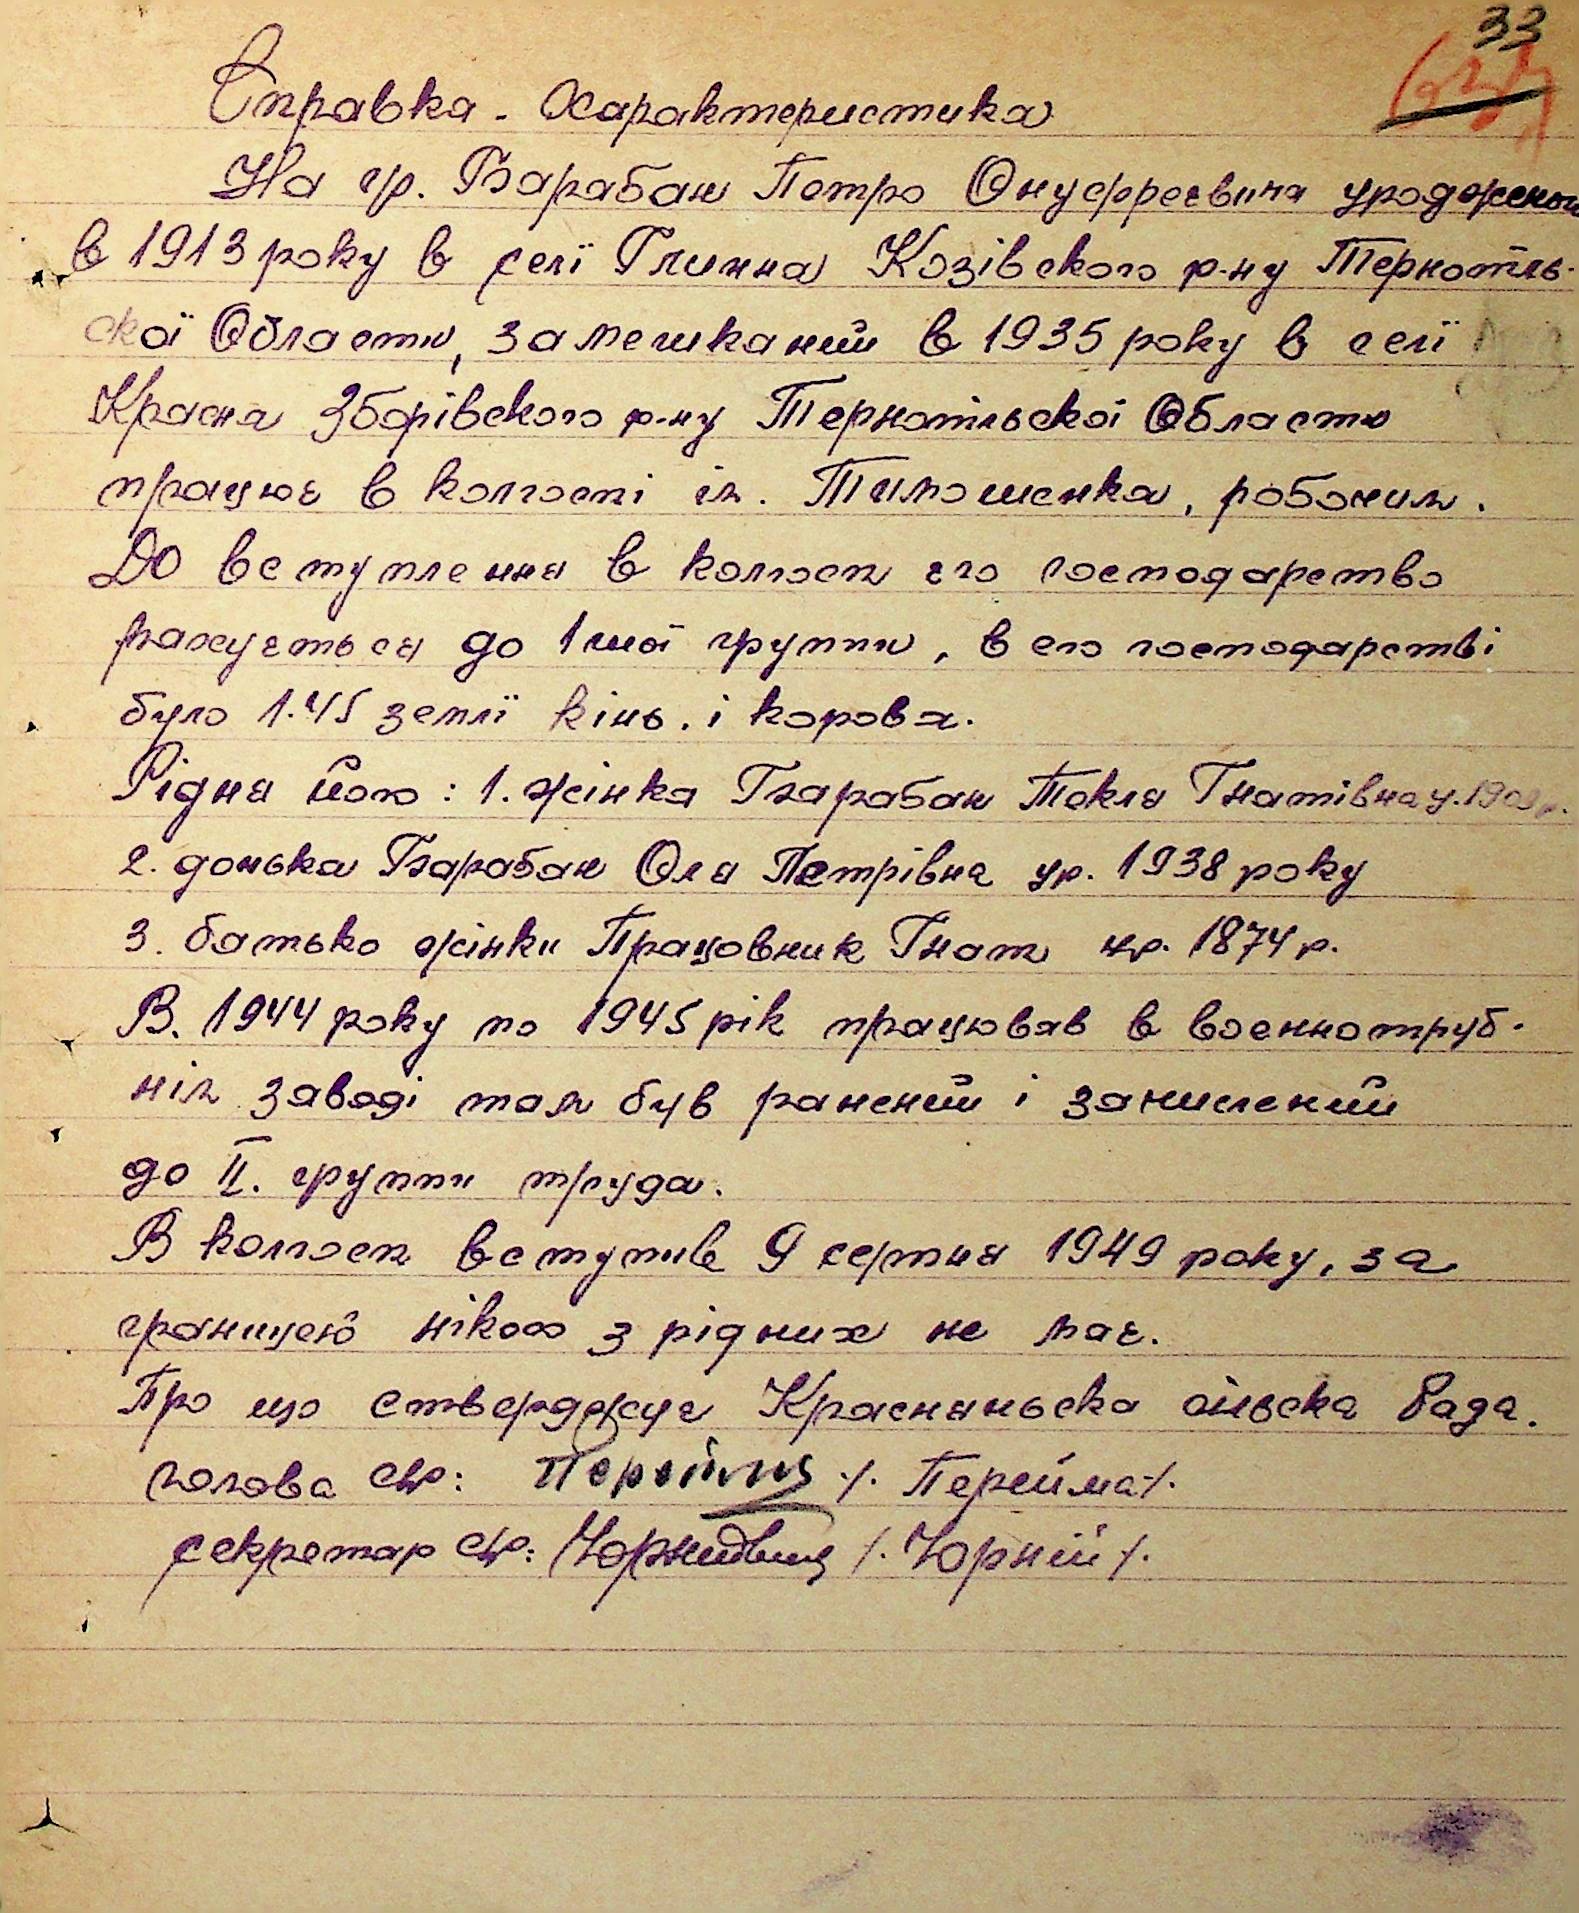 33
Справка - Характеристика
На гр. Барабан Петро Онуфрегвича уродженого
в 1913 року в селі Глинна Козівского р-ну Тернопіль-
скої Области, замешканий в 1935 року в селі
Красна Зборівского р-ну Тернопільскої Области
працює в колгоспі ім. Тимошенка, робочим.
До вступлення в колгосп его господарство
рахується до 1 шої группи, в его господарстві
було 1.45 землі кінь. і корова.
Рідня його: 1. жінка Барабан Текля Гнатівна у.
2. донька Барабан Оля Петрівна ур. 1938 року
3. батько жінки Працовник Гнат ур. 1874 р.
В. 1944 року по 1945 рік працював в военнотруб-
нім заводі там був ранений і зачислений
до II. групи труда.
В колгосп вступив 9 серпня 1949 року, за
границею нікого з рідних не має.
Про що стверджує Красняньска сільска Рада.
голова с/р: Перейма /. Перейма /.
секретар с/р: /. Чорній /.